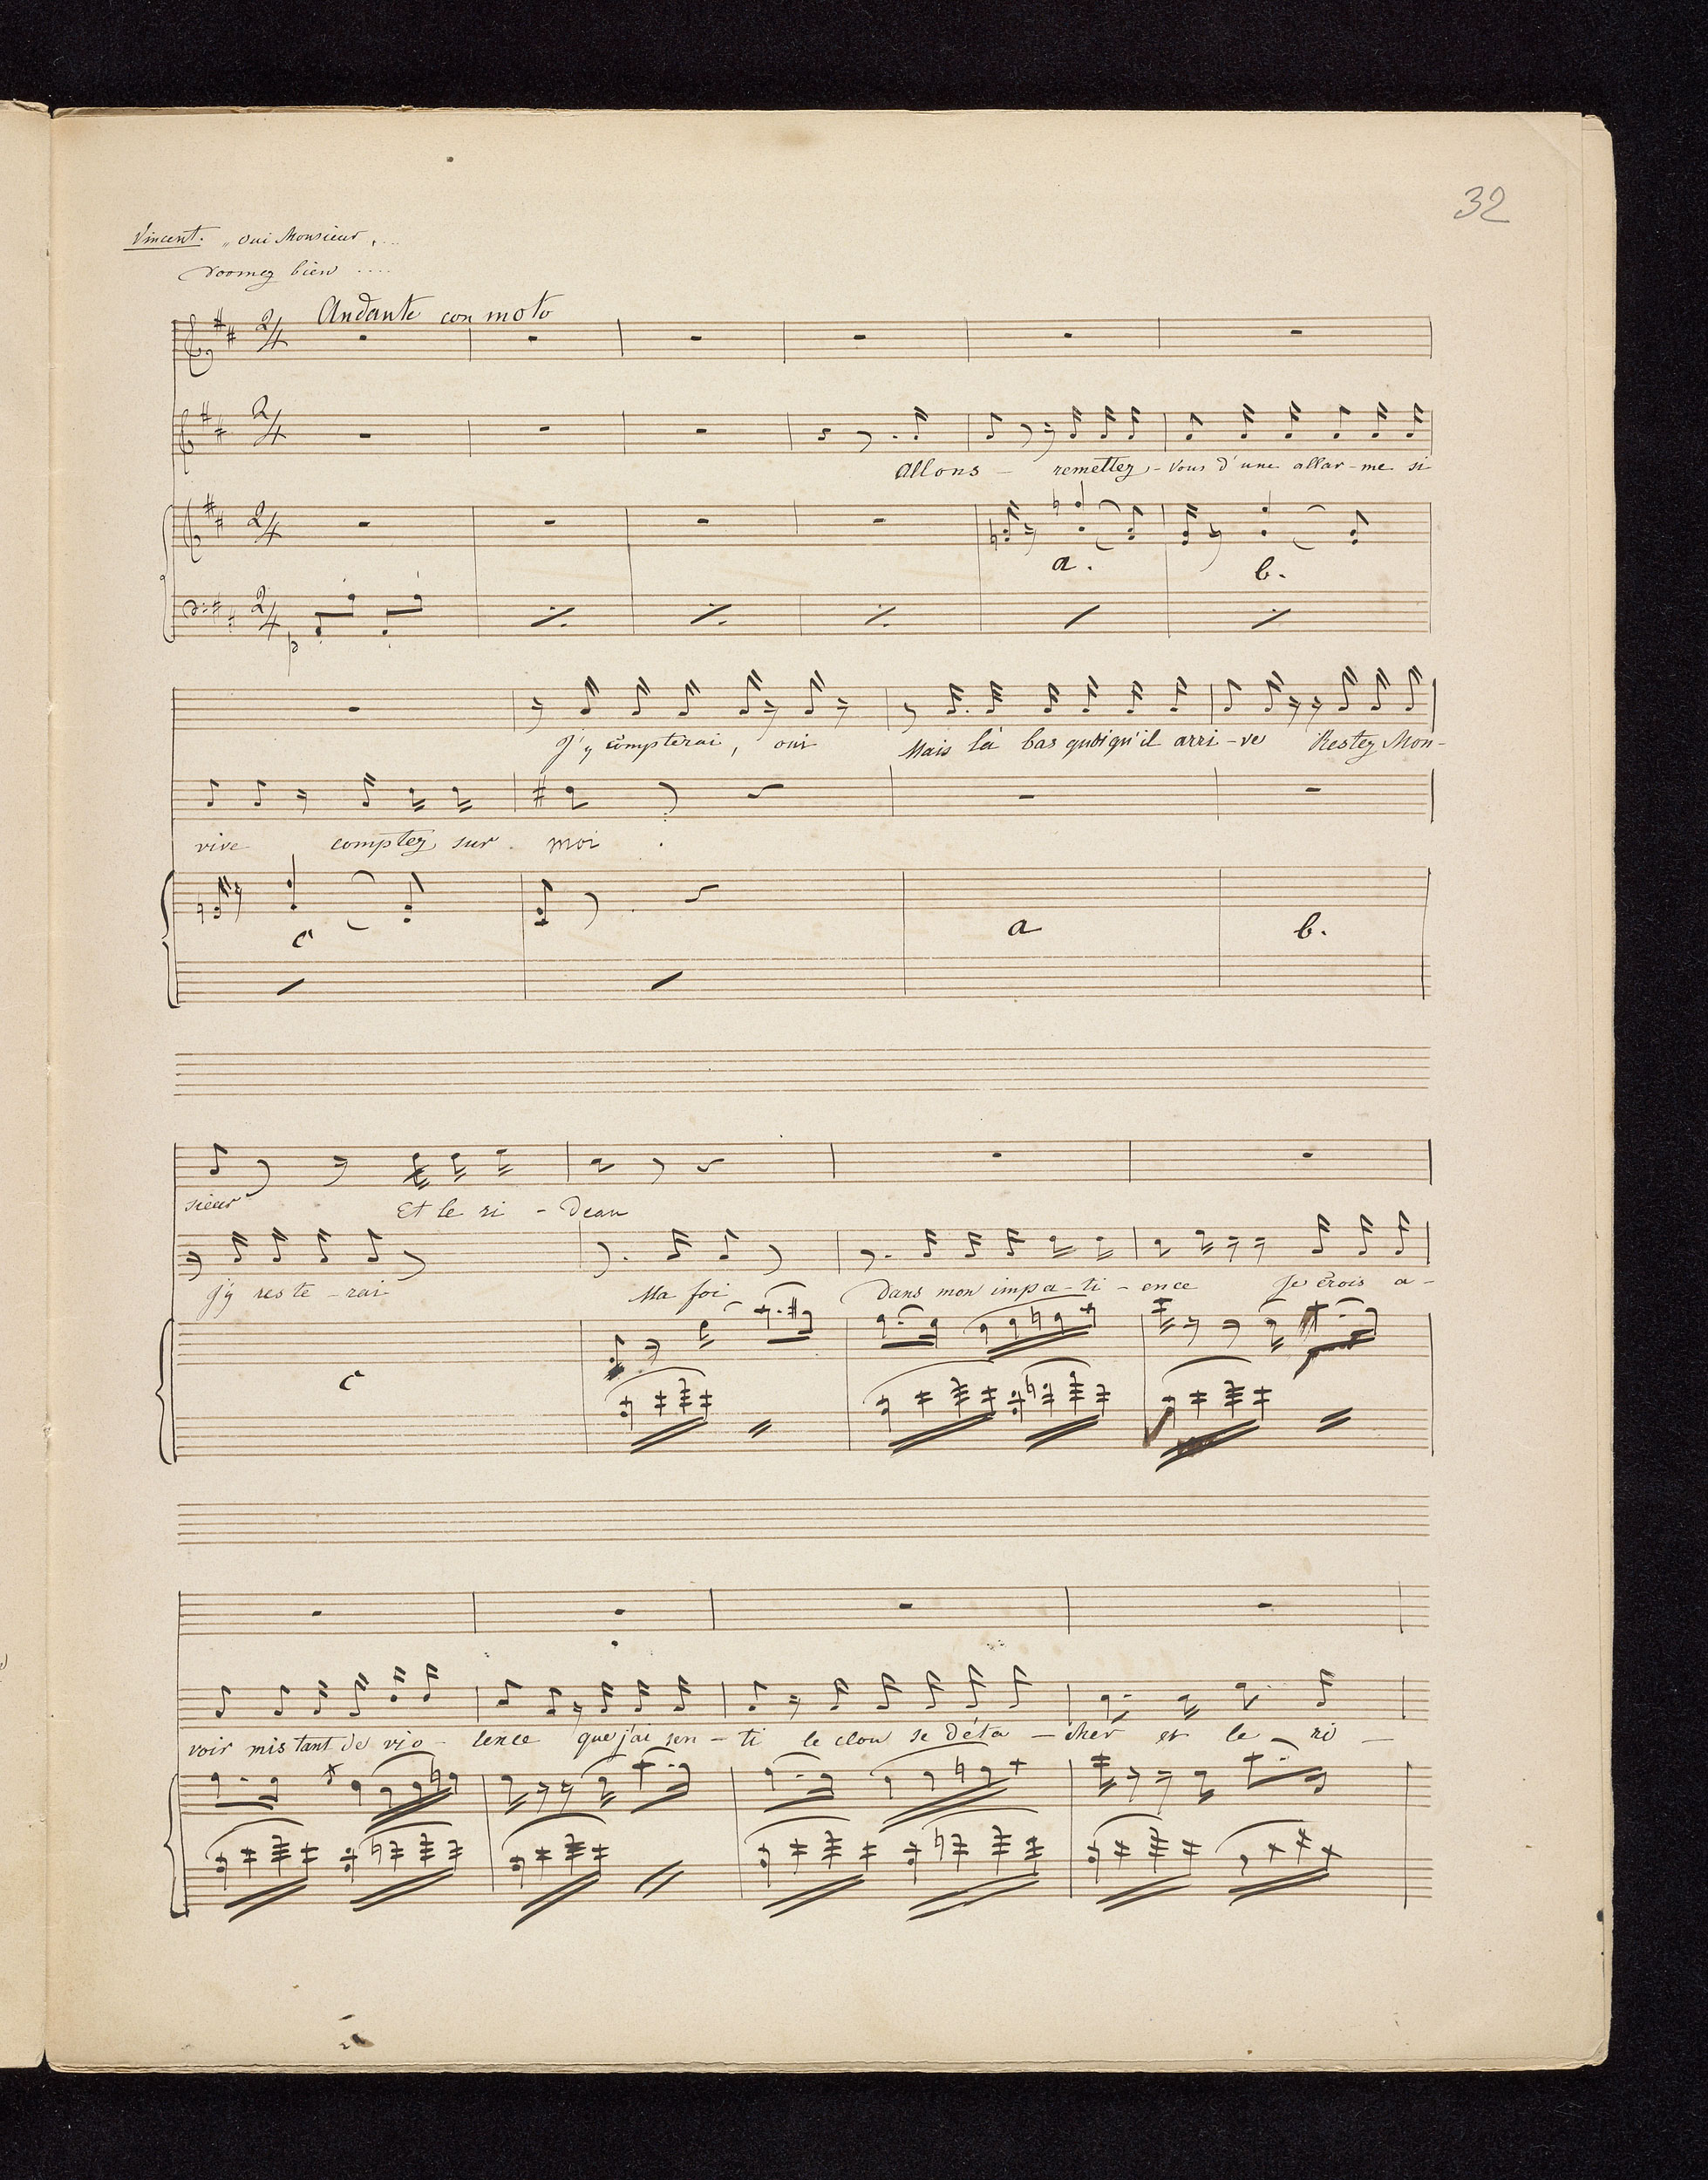 32
Vincent. „ oui Monsieur, ...
dormez bien ....
Andante con moto
2/4
2/4
Allons - remettez - vous d'une allar - me si
2/4
a. b.
2/4
p
J'y compterai, oui Mais là bas quoiqu'il arri - ve Restez Mon -
vive comptez sur moi .
c a b.
sieur Et le ri - deau
j'y reste - rai Ma foi Dans mon impa - ti - ence Je crois a -
c
voir mis tant de vio - lence que j'ai sen - ti le clou se déta - cher et le ri -